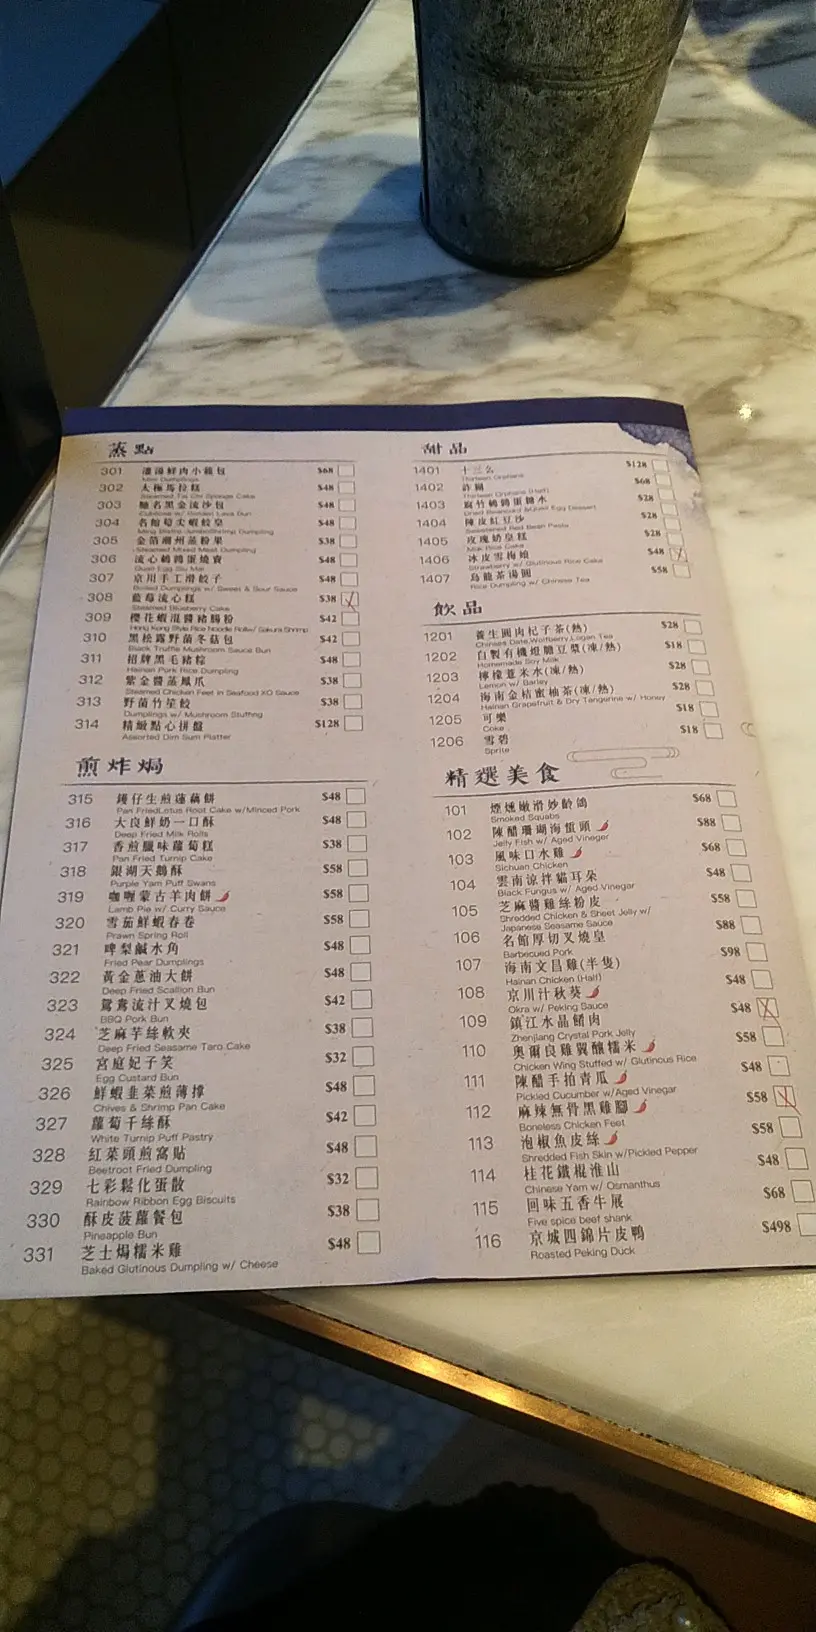 蒸點
301 灌湯鮮肉小籠包 $68
Mini Dumplings
302 太極馬拉糕 $48
Steamed Tai Chi Sponge Cake
303 馳名黑金流沙包 $48
304 名館筍尖蝦餃皇 $48
305 金箔潮州蒸粉果 $38
Steamed Mixed Meat Dumpling
306 流心鵪鶉蛋燒賣 $48
Quail Egg Siu Mai
307 京川手工滑餃子 $48
Boiled Dumplings w/ Sweet & Sour Sauce
308 藍莓流心糕 $38
Steamed Blueberry Cake
309 櫻花蝦混醬豬腸粉 $42
Hong Kong Style Rice Noodle Rolls w/ Sakura Shrimp
310 黑松露野菌冬菇包 $42
Black Truffle Mushroom Sauce Bun
311 招牌黑毛豬粽 $48
Hainan Pork Rice Dumpling
312 紫金醬蒸鳳爪 $38
Steamed Chicken Feet in Seafood XO Sauce
313 野菌竹笙餃 $38
Dumplings w/ Mushroom Stuffing
314 精緻點心拼盤 $128
Assorted Dim Sum Platter
煎炸焗
315 鑊仔生煎蓮藕餅 $48
Pan FriedLotus Root Cake w/Minced Pork
316 大良鮮奶一口酥 $48
Deep Fried Milk Rolls
317 香煎臘味蘿蔔糕 $38
Pan Fried Turnip Cake
318 銀湖天鵝酥 $58
Purple Yam Puff Swans
319 咖喱蒙古羊肉餅 $58
Lamb Pie w/ Curry Sauce
320 雪茄鮮蝦春卷 $58
Prawn Spring Roll
321 啤梨鹹水角 $48
Fried Pear Dumplings
322 黃金蔥油大餅 $48
Deep Fried Scallion Bun
323 鴛鴦流汁叉燒包 $42
BBQ Pork Bun
324 芝麻芋絲軟夾 $38
Deep Fried Seasame Taro Cake
325 宮庭妃子笑 $32
Egg Custard Bun
326 鮮蝦韭菜煎薄撐 $48
Chives & Shrimp Pan Cake
327 蘿蔔千絲酥 $42
White Turnip Puff Pastry
328 紅菜頭煎窩貼 $48
Beetroot Fried Dumpling
329 七彩鬆化蛋散 $32
Rainbow Ribbon Egg Biscuits
330 酥皮菠蘿餐包 $38
Pineapple Bun
331 芝士焗糯米雞 $48
Baked Glutinous Dumpling w/ Cheese
甜品
1401 十三么 $128
Thirteen Orphans
1402 詐糊 $68
Thirteen Orphans (Half)
1403 腐竹鵪鶉蛋糖水 $28
Dried Beancurd &Quail Egg Dessert
1404 陳皮紅豆沙 $28
Sweetened Red Bean Paste
1405 玫瑰奶皇糕 $28
Milk Rice Cake
1406 冰皮雪梅娘 $48
Strawberry w/ Glutinous Rice Cake
1407 烏龍茶湯圓 $58
Rice Dumpling w/ Chinese Tea
飲品
1201 養生圓肉杞子茶(熱) $28
Chinses Date,Wolfberry,Logan Tea
1202 自製有機燈膽豆漿(凍/熱) $18
Homemade Soy Milk
1203 檸檬薏米水(凍/熱) $28
Lemon w/ Barley
1204 海南金桔蜜柚茶(凍/熱) $28
Hainan Grapefruit & Dry Tangerine w/ Honey
1205 可樂 $18
Coke
1206 雪碧 $18
Sprite
精選美食
101 煙燻嫩滑妙齡鴿 $68
Smoked Squabs
102 陳醋珊瑚海蜇頭 $88
Jelly Fish w/ Aged Vineger
103 風味口水雞 $68
Sichuan Chicken
104 雲南涼拌貓耳朵 $48
Black Fungus w/ Aged Vinegar
105 芝麻醬雞絲粉皮 $58
Shredded Chicken & Sheet Jelly w/
Japanese Seasame Sauce
106 名館厚切叉燒皇 $88
Barbecued Pork
107 海南文昌雞(半隻) $98
Hainan Chicken (Half)
108 京川汁秋葵 $48
Okra w/ Peking Sauce
109 鎮江水晶餚肉 $48
Zhenjiang Crystal Pork Jelly
110 奧爾良雞翼釀糯米 $58
Chicken Wing Stuffed w/ Glutinous Rice
111 陳醋手拍青瓜 $48
Pickled Cucumber w/Aged Vinegar
112 麻辣無骨黑雞腳 $58
Boneless Chicken Feet
113 泡椒魚皮絲 $58
Shredded Fish Skin w/Pickled Pepper
114 桂花鐵棍淮山 $48
Chinese Yam w/ Osmanthus
115 回味五香牛展 $68
Five spice beef shank
116 京城四錦片皮鴨 $498
Roasted Peking Duck